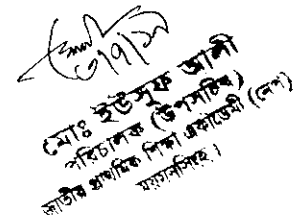 মোঃ ইউসুফ আলী
পরিচালক (উপসচিব)
জাতীয় প্রাথমিক শিক্ষা একাডেমী (নেপ)
ময়মনসিংহ।